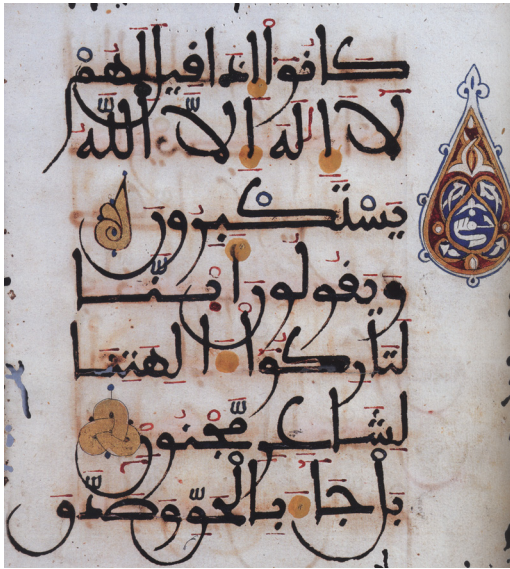 كانوا إذا قيل لهم
لا إله إلا الله
يستكبرون
ويقولون أينا
لتاركوا ءالهتنا
لشاعر مجنون
بل جاء بالحق وصدق